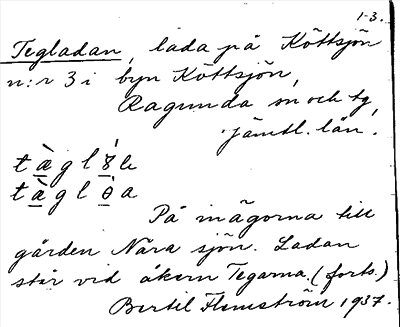 1-3.
Tegladan, lada på Köttsjön
n:r 3 i byn Köttsjön,
Ragunda sn och tg,
Jämtl. län.
På inägorna till
gården Nära sjön. Ladan
står vid åkern Tegarna. (forts.)
Bertil Flemström 1937.